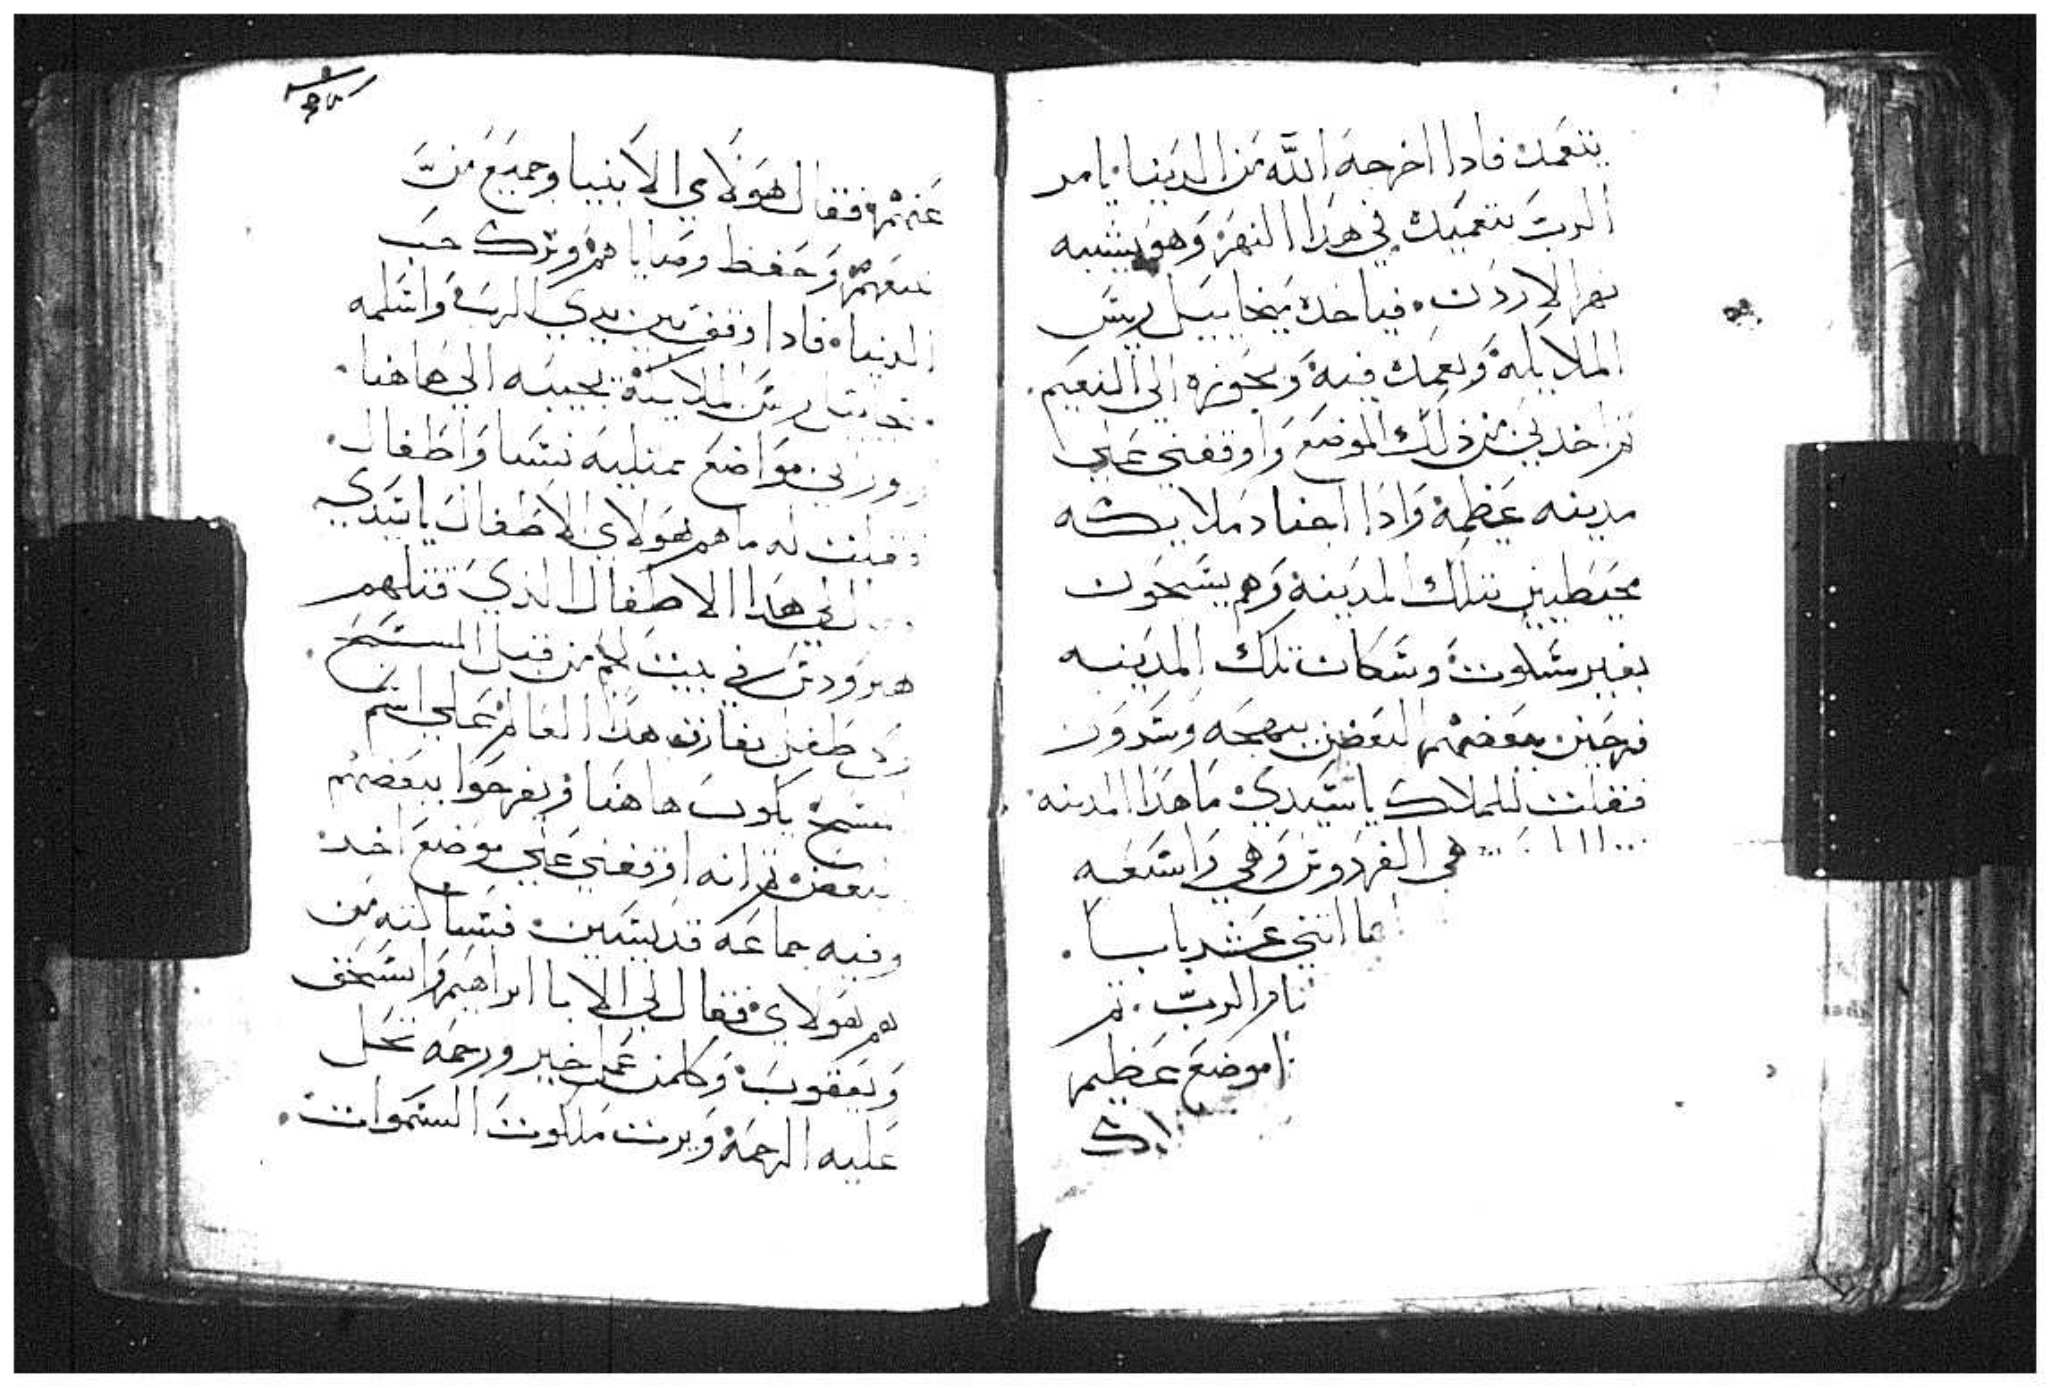 يتعمد فادا اخرجه الله من الدنيا يامر
الرب بتعميده في هدا النهر وهو يشبه
نهر الاردن. فياخده ميخاييل ريس
الملايكه ويعمده فيه ويجوزه الي النعيم.
تم اخدني من ذلك الموضع واوقفني علي
مدينه عظمه وادا اجناد ملايكه
محيطيين بتلك المدينه وهم يسبحون
بغير سكوت وسكان تلك المدينه
فرحين ببعضهم البعض ببهجه وسرور
فقلت للملاك ياسيدي ما هدا المدينه.
هي الفردوس وهي واسعه
اتني عشر بابا.
الرب. تم
موضع عظيم
عنهم. فقال هولاي الانبيا وجميع من
تبعهم وحفظ وصاياهم وترك حب
الدنيا. فادا وقف بين يدي الرب واسلمه
ريس الملايكة يجيبه الي هاهنا.
مواضع ممتليه نسا واطفال.
فقلت له ما هم هولاي الاطفال ياسيدي
لي هدا الاطفال الدي قتلهم
هيرودس في بيت لحم من قبل المسيح.
وكل طفل يفارق هدا العالم علي اسم
المسيح يكون هاهنا ويفرحوا ببعضهم
البعض تم انه اوقفني علي موضع اخد
وفيه جماعه قديسين. فسالته من
هم هولاي فقال لي الابا ابراهيم واسحق
ويعقوب وكلمن عمل خير ورحمه تحل
عليه الرحمه ويرت ملكوت السموات.